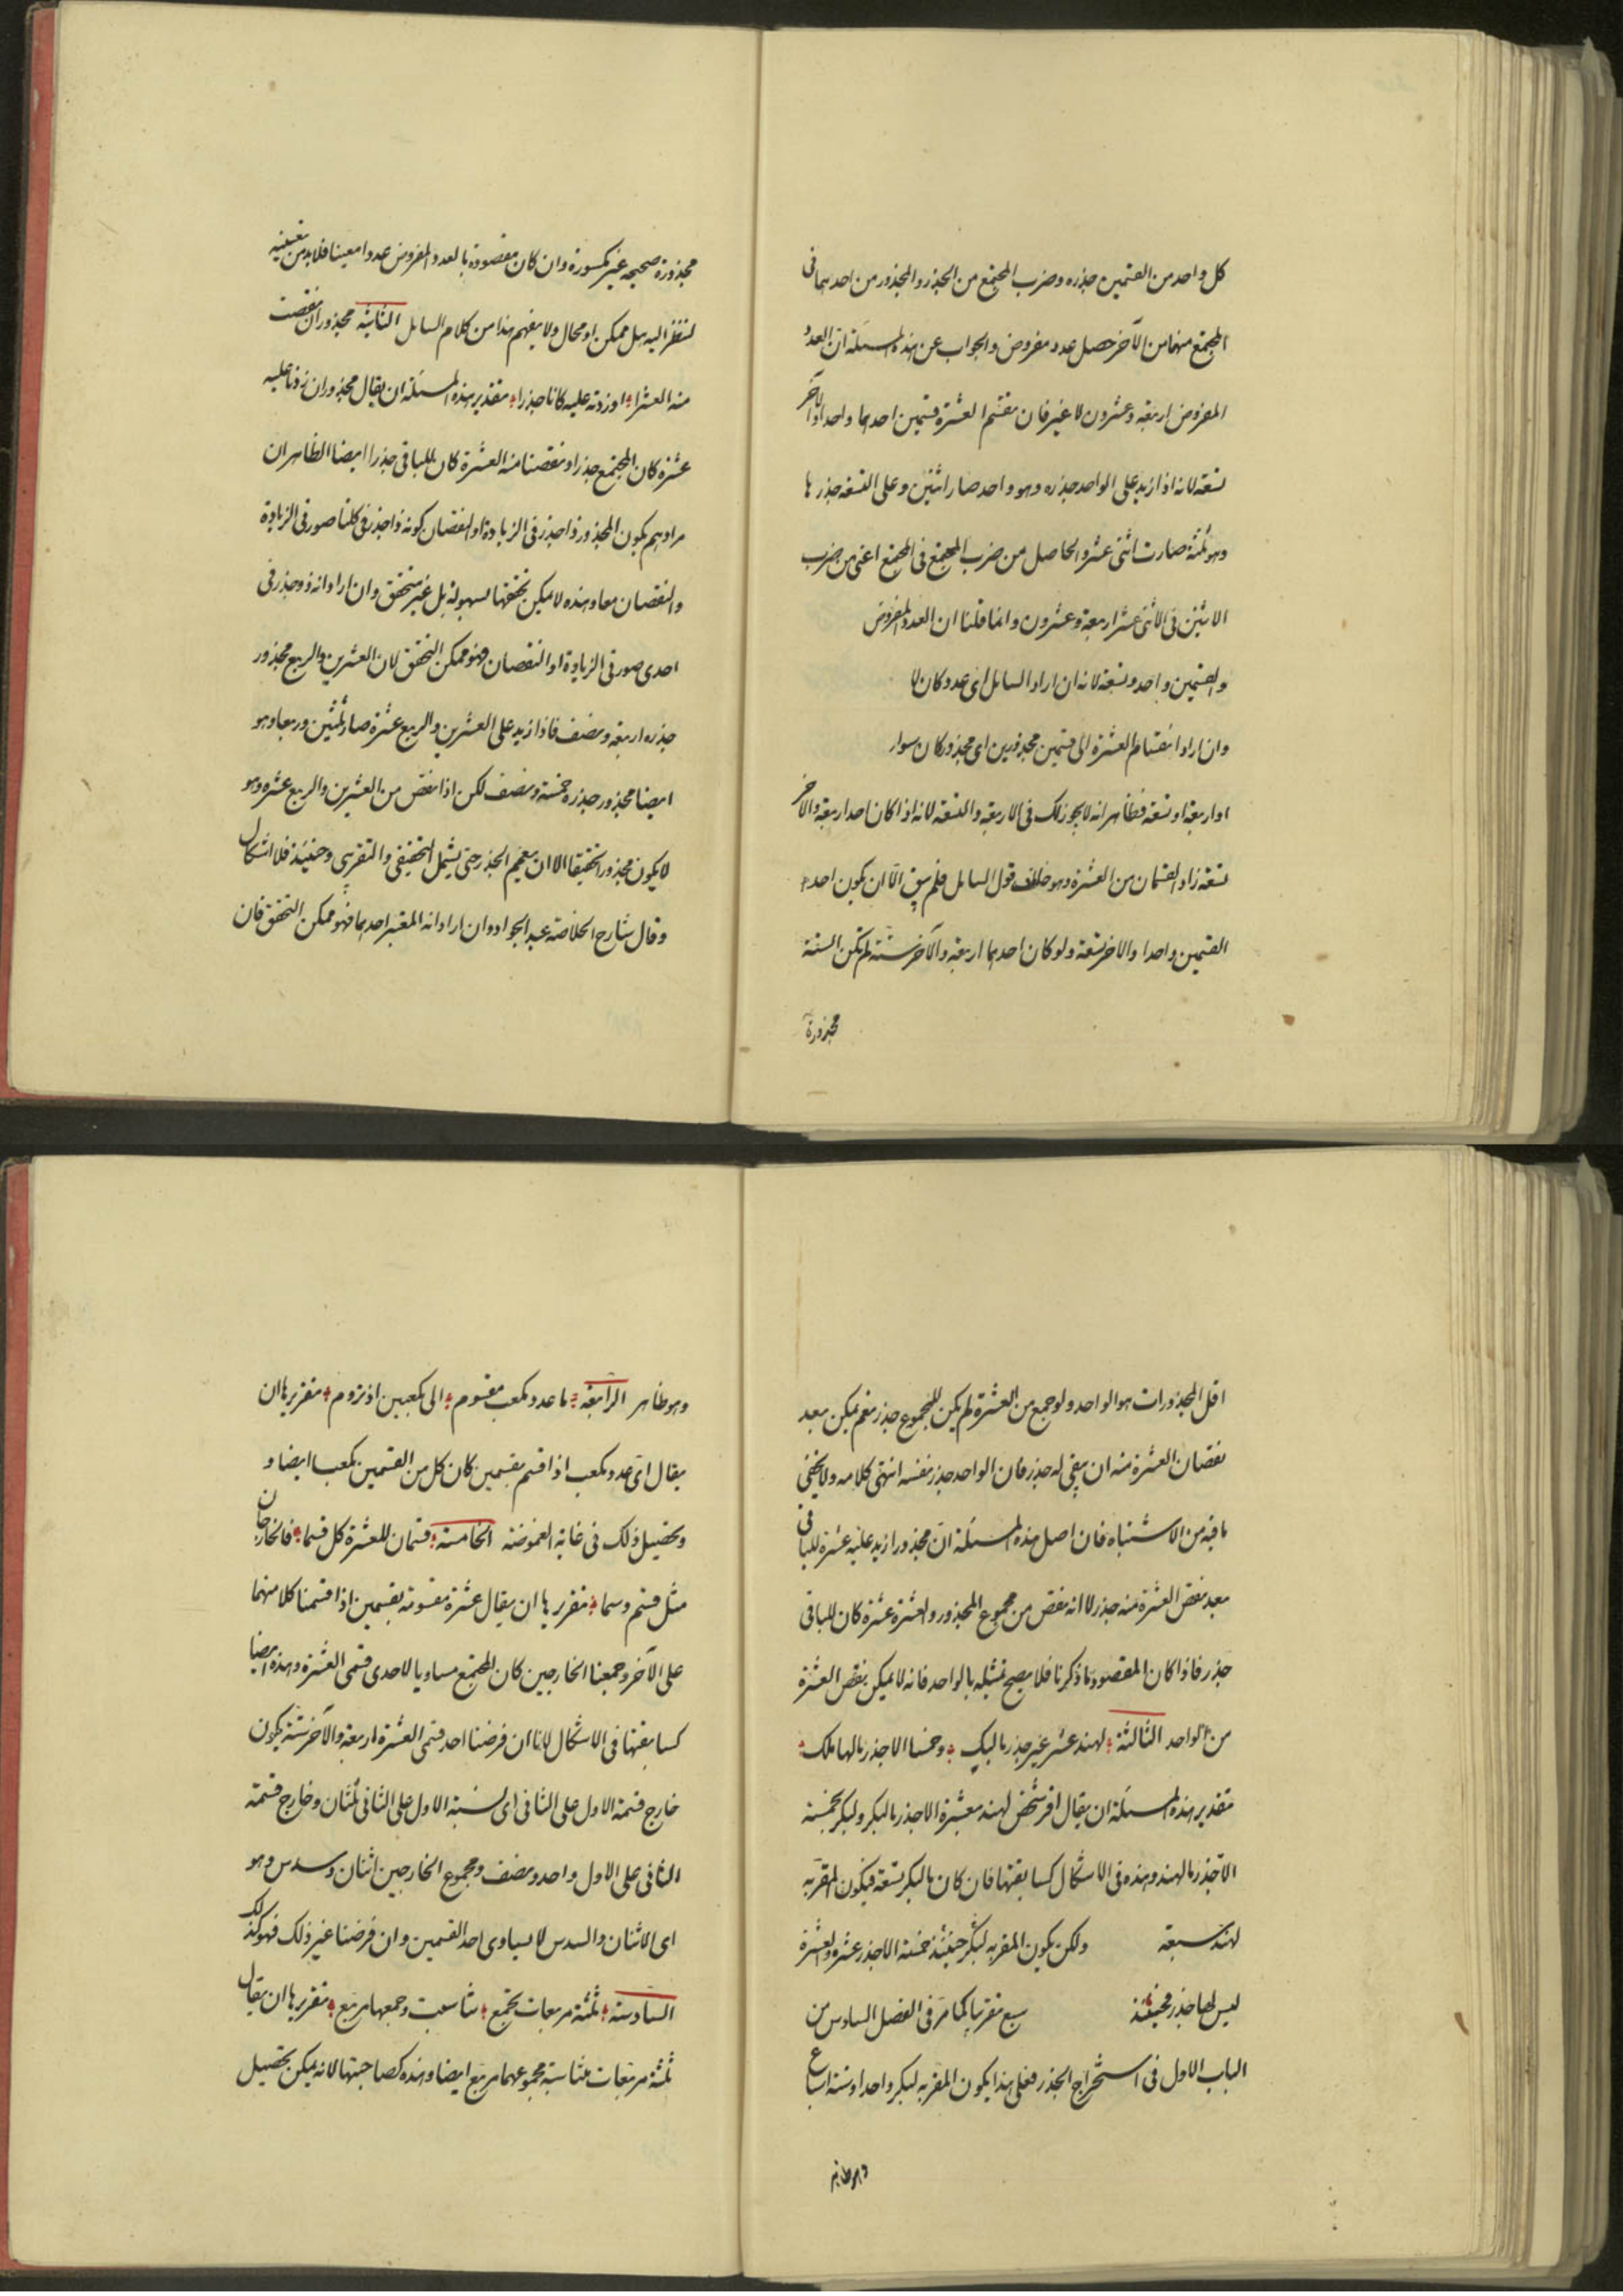 كل واحد من القسمين جذره وضرب المجتمع من الجذر والمجذور من احدهما فى
المجتمع منهما من الآخر حصل عدد مفروض والجواب عن هذه المسئلة ان العدد
المفروض اربعة وعشرون لا غير فان نقسم العشرة قسمين احدهما واحد والآخر
تسعة لانه اذا زيد على الواحد جذره وهو واحد صار اثنين وعلى التسعة جذرها
وهو ثلثة صارت اثنى عشر والحاصل من ضرب المجتمع فى المجتمع اعنى من ضرب
الاثنين فى الاثنى عشر اربعة وعشرون وانما قلنا ان العدد المفروض
والقسمين واحد وتسعة لانه ان اراد السايل اى عدد كان لا
وان اراد انقسام العشرة الى قسمين مجذورين اى مجذور كان سواء
او اربعة او تسعة فظاهر انه لا يجوز ذلك فى الاربعة والتسعة لانه اذا كان احد اربعة والآخر
تسعة زاد القسمان من العشرة وهو خلاف قول السايل فلم يبق الّا ان يكون احد
القسمين واحدا والاخر تسعة ولو كان احدهما اربعة والآخر ستة لم تكن الستة
مجذورة
مجذورة صحيحه غير مكسورة وان كان مقصوده بالعدد المفروض عددا معينا فلابد من تعيينه
لننظر اليه هل ممكن او محال ولا يفهم هذا من كلام السايل الثانية مجذور ان نقصت
منه العشرا او زدته عليه كانا جذرا تقدير هذه المسئلة ان يقال مجذور ان زدنا عليه
عشرة كان المجتمع جذرا ونقصنا منه العشرة كان للباقى جذرا ايضا الظاهر ان
مرادهم بكون المجذور ذا جذر فى الزيادة او النقصان كونه ذا جذر فى كلتا صورتى الزيادة
والنقصان معا وهذه لا يمكن تحققها بسهولة بل غير متحقق وان اراد انه ذو جذر فى
احدى صورتى الزيادة او النقصان فهو ممكن التحقق لان العشرين والربع مجذور
جذره اربعة ونصف فاذا زيد على العشرين والربع عشرة صار ثلثين وربعا وهو
ايضا مجذور جذره خمسة ونصف لكن اذا نقص من العشرين والربع عشره وهو
لا يكون مجذورا تحقيقا الا ان يعمم الجذر حتى يشمل التحقيقى والتقريبى وحينئذ فلا اشكال
وقال شارح الخلاصة عبد الجواد وان اراد انه المعتبر احدهما فهو ممكن التحقق فان
اقل المجذورات هو الواحد ولو جمع من العشرة لم يكن للمجموع جذر نعم يمكن بعد
نقصان العشرة منه ان يبقى له جذر فان الواحد جذر نفسه انتهى كلامه ولا يخفى
ما فيه من الاشتباه فان اصل هذه المسئلة انّ مجذورا زيد عليه عشرة للباقى
بعد نقص العشرة منه جذر لا انه نقص من مجموع المجذور والعشرة عشرة كان للباقى
جذر فاذا كان المقصود ما ذكرنا فلا يصح تمثيله بالواحد فانه لا يمكن نقص العشرة
من الواحد الثالثة لهند عشر غير جذر ما لبك وخمسا الا جذر ما لها ملك
تقدير هذه المسئلة ان يقال اقر شخص لهند بعشرة الا جذر ما لبكر ولبكر بخمسة
الا جذر ما لهند وهذه فى الاشكال كسابقتها فان كان ما لبكر تسعة فيكون المقر به
لهند سبعة ولكن يكون المقر به لبكر حينئذ خمسة الا جذر عشرة والعشرة
ليس لها جذر فحينئذ سبع تقريبا كما مرّ فى الفصل السادس من
الباب الاول فى استخراج الجذر فعلى هذا يكون المقر به لبكر واحدا وستة اسباع
وهو ظاهر
وهو ظاهر الرابعة ما عدد مكعب مقسوم الى مكعبين اذ تروم تقريرها ان
يقال اى عدد مكعب اذا قسم بقسمين كان كل من القسمين مكعبا ايضا و
وتحصيل ذلك فى غاية الغموضة الخامسة قسمان للعشرة كل قسما فالخارجان
مثل قسم وسما تقريرها ان يقال عشرة مقسومة بقسمين اذا قسمنا كلا منهما
على الآخر وجمعنا الخارجين كان المجتمع مساويا لاحدى قسمى العشرة وهذه ايضا
كسابقتها فى الاشكال لانا ان فرضنا احد قسمى العشرة اربعة والآخر ستة يكون
خارج قسمة الاول على الثانى اى نسبة الاول على الثانى ثلثان وخارج قسمة
الثانى على الاول واحد ونصف ومجموع الخارجين اثنان وسدس وهو
اى الاثنان والسدس لا يساوى احد القسمين وان فرضنا غير ذلك فهو كذلك
السادسة ثلثة مربعات تجتمع تناسبت وجمعها مربع تقريرها ان يقال
ثلثة مربعات متناسبة مجموعهما مربع ايضا وهذه كصاحبتها لانه يمكن تحصيل